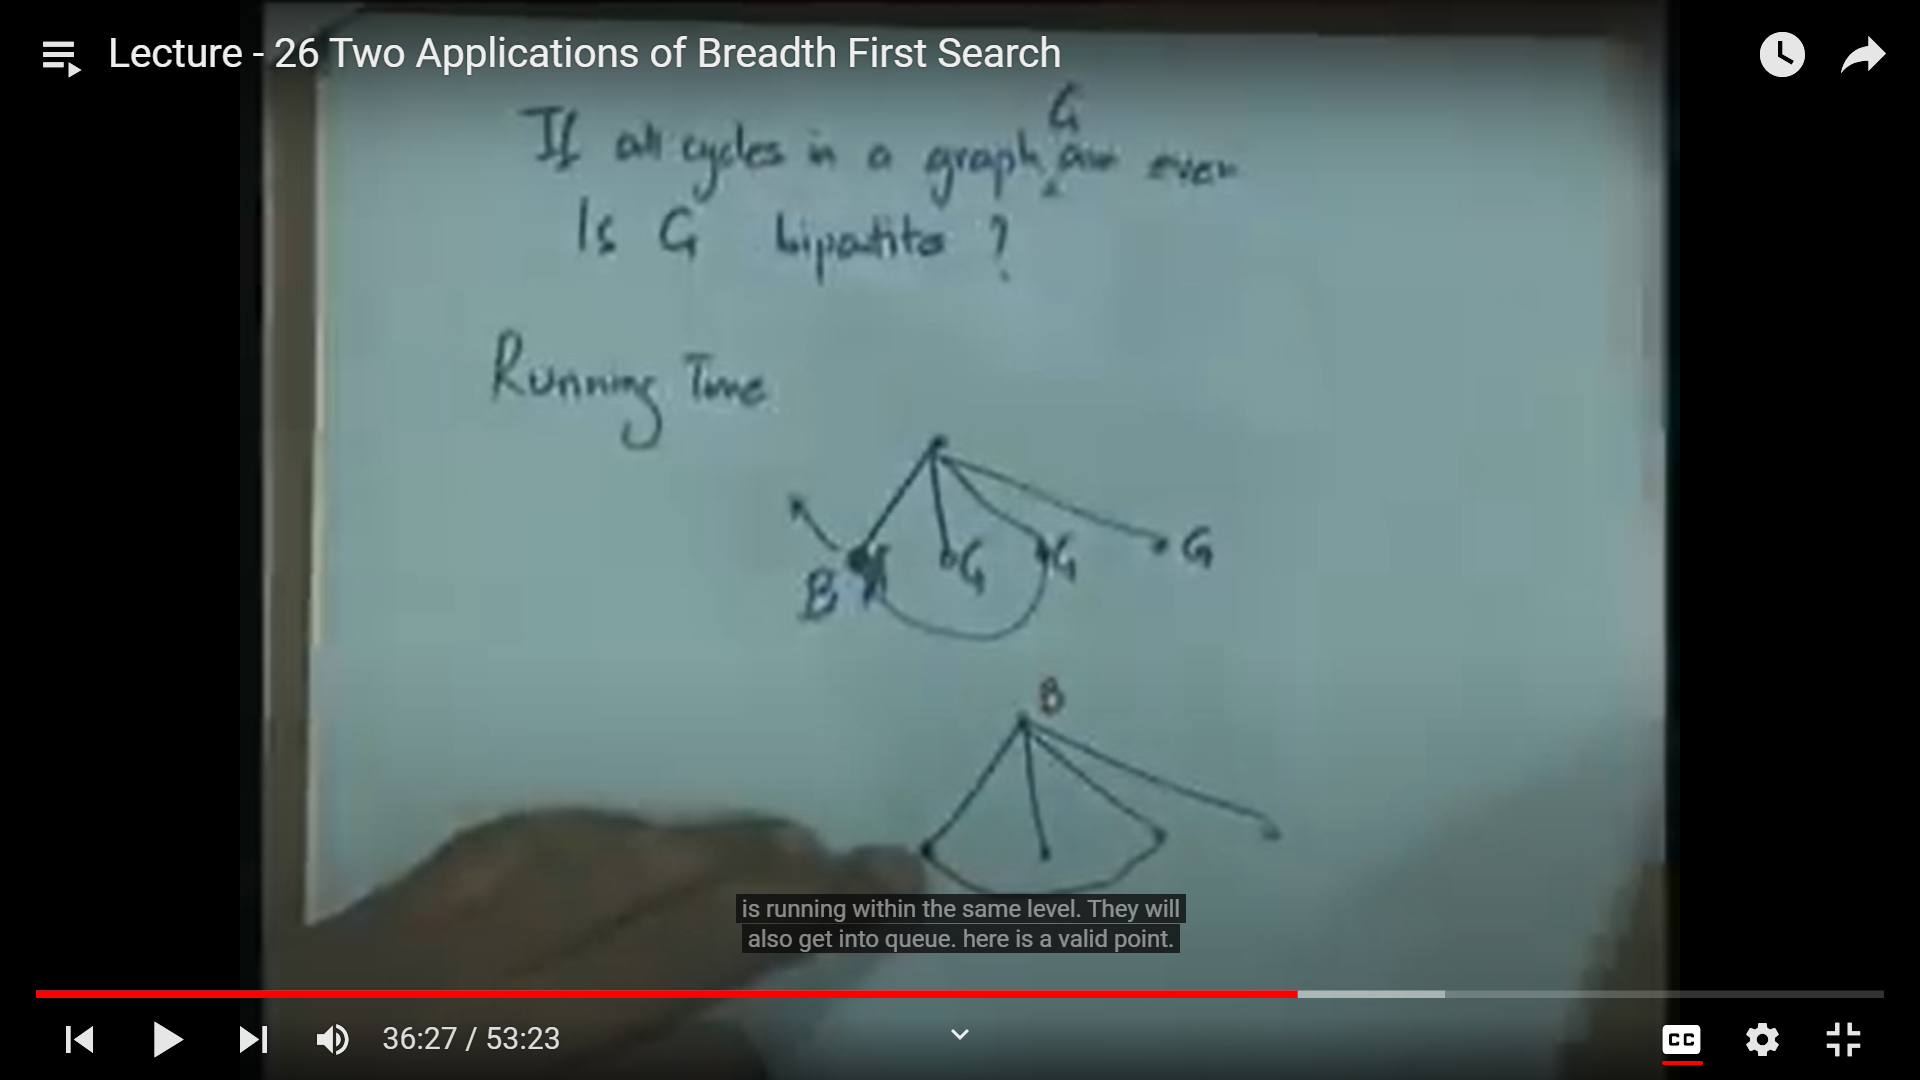 Lecture - 26 Two Applications of Breadth First Search
G
If all cycles in a graph are even
Is G bipartite ?
Running Time
B G G G
B
is running within the same level. They will
also get into queue. here is a valid point.
36:27 / 53:23
CC